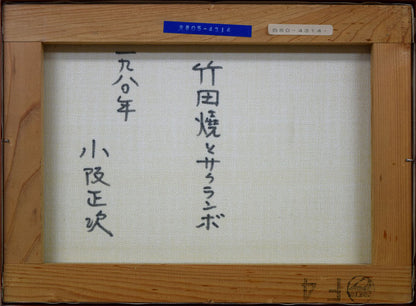 5805-4314
580-4314
竹田焼とサクランボ
一九八〇年
小阪正次
F4